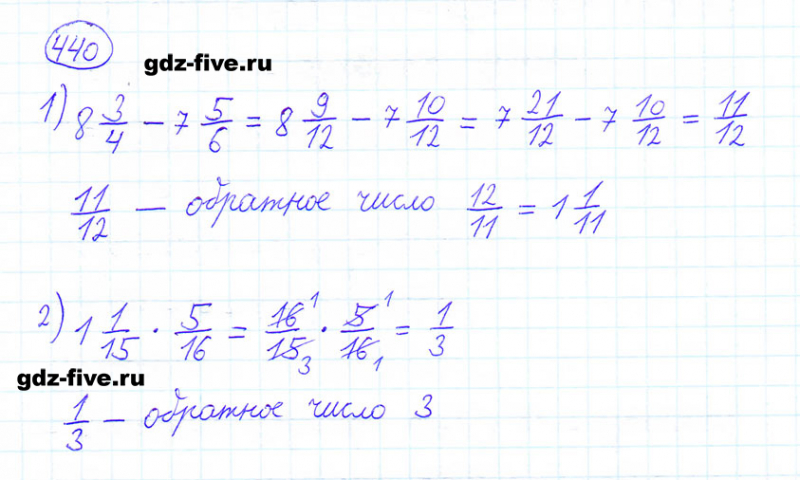 440
gdz-five.ru
1) 8 3/4 − 7 5/6 = 8 9/12 − 7 10/12 = 7 21/12 − 7 10/12 = 11/12
11/12 — обратное число 12/11 = 1 1/11
2) 1 1/15 · 5/16 = 16 1/15 3 · 5 1/16 1 = 1/3
gdz-five.ru
1/3 — обратное число 3